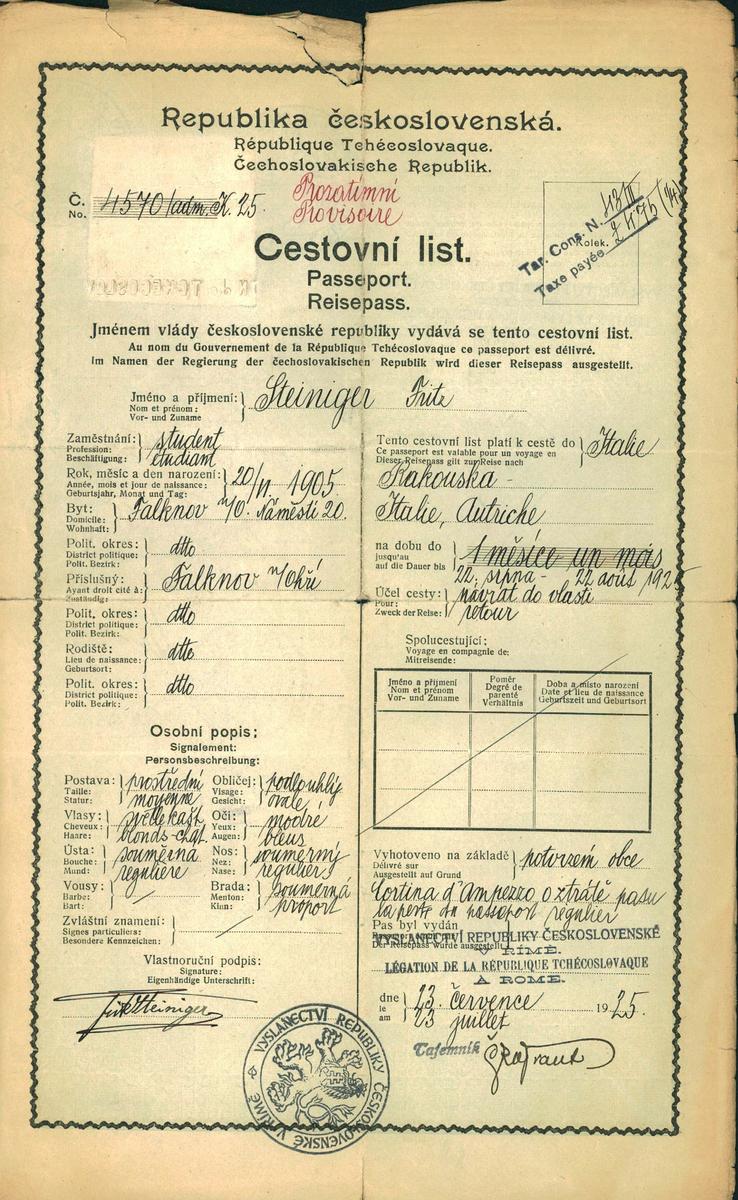 Republika československá.
République Tchécoslovaque.
Čechoslovakische Republik.
Č. 4570/adm. K. 25.
No.
Prozatímní
Provisoire
Tar. Cons. N. 43 II
Kolek.
Taxe payée
Cestovní list.
Passeport.
Reisepass.
Jménem vlády československé republiky vydává se tento cestovní list.
Au nom du Gouvernement de la République Tchécoslovaque ce passeport est délivré.
Im Namen der Regierung der čechoslovakischen Republik wird dieser Reisepass ausgestellt.
Jméno a příjmení: Steiniger Fritz
Nom et prénom:
Vor- und Zuname
Zaměstnání: student
Profession: étudiant
Beschäftigung:
Rok, měsíc a den narození: 20/VI 1905
Année, mois et jour de naissance:
Geburtsjahr, Monat und Tag:
Byt: Falknov n/O. Náměstí 20.
Domicile:
Wohnhaft:
Polit. okres: dtto
District politique:
Polit. Bezirk:
Příslušný: Falknov n/Ohří
Ayant droit cité à:
Zuständig:
Polit. okres: dtto
District politique:
Polit. Bezirk:
Rodiště: dtto
Lieu de naissance:
Geburtsort:
Polit. okres: dtto
District politique:
Polit. Bezirk:
Osobní popis:
Signalement:
Personsbeschreibung:
Postava: prostřední
Taille: moyenne
Statur:
Obličej: podlouhlý
Visage: ovale
Gesicht:
Vlasy: světle kašt
Cheveux: blonds-chat.
Haare:
Oči: modré
Yeux: bleus
Augen:
Ústa: souměrná
Bouche: régulière
Mund:
Nos: souměrný
Nez: régulier
Nase:
Vousy:
Barbe:
Bart:
Brada: souměrná
Menton: proport
Kinn:
Zvláštní znamení:
Signes particuliers:
Besondere Kennzeichen:
Vlastnoruční podpis:
Signature:
Eigenhändige Unterschrift:
Fritz Steiniger
VYSLANECTVÍ REPUBLIKY ČESKOSLOVENSKÉ V ŘÍMĚ
Tento cestovní list platí k cestě do Italie
Ce passeport est valable pour un voyage en
Dieser Reisepass gilt zur Reise nach
Rakouska -
Italie, Autriche
na dobu do 1 měsíce un mois
jusqu'au
auf die Dauer bis
22. srpna - 22 août 1925
Účel cesty: návrat do vlasti
Pour: retour
Zweck der Reise:
Spolucestující:
Voyage en compagnie de:
Mitreisende:
Jméno a příjmení
Nom et prénom
Vor- und Zuname
Poměr
Degré de parenté
Verhältnis
Doba a místo narození
Date et lieu de naissance
Geburtszeit und Geburtsort
Vyhotoveno na základě potvrzení obce
Délivré sur
Ausgestellt auf Grund
Cortina d'Ampezzo o ztrátě pasu
la perte du passeport régulier
Pas byl vydán
Der Reisepass wurde ausgestellt
VYSLANECTVÍ REPUBLIKY ČESKOSLOVENSKÉ
V ŘÍMĚ.
LÉGATION DE LA RÉPUBLIQUE TCHÉCOSLOVAQUE
A ROME.
dne 23. července 1925.
le 23 juillet
am
Tajemník